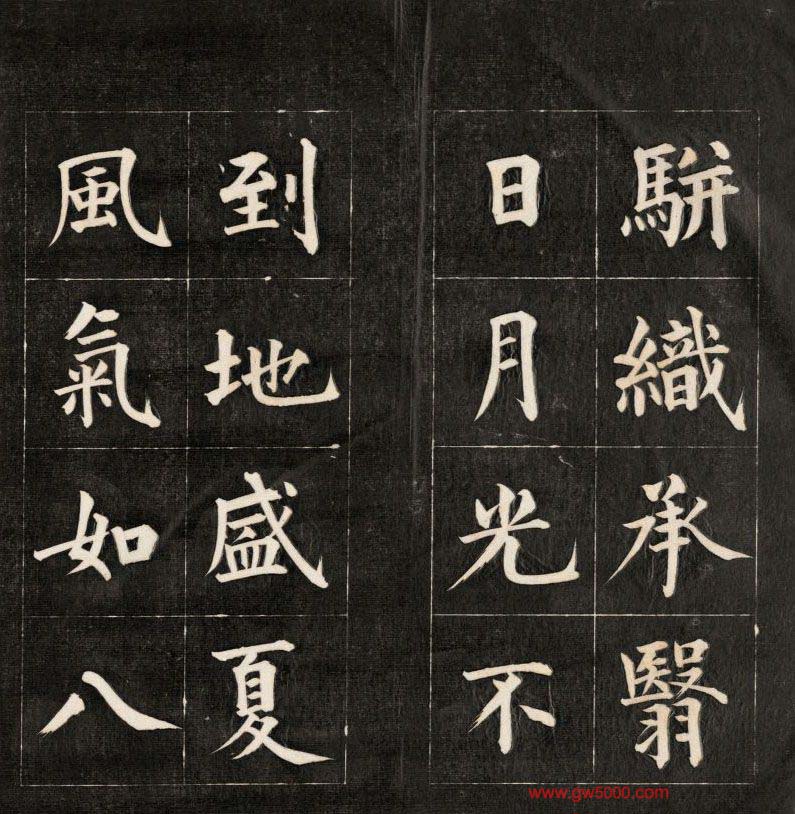 駢織承翳
日月光不
到地盛夏
風氣如八
www.gw5000.com